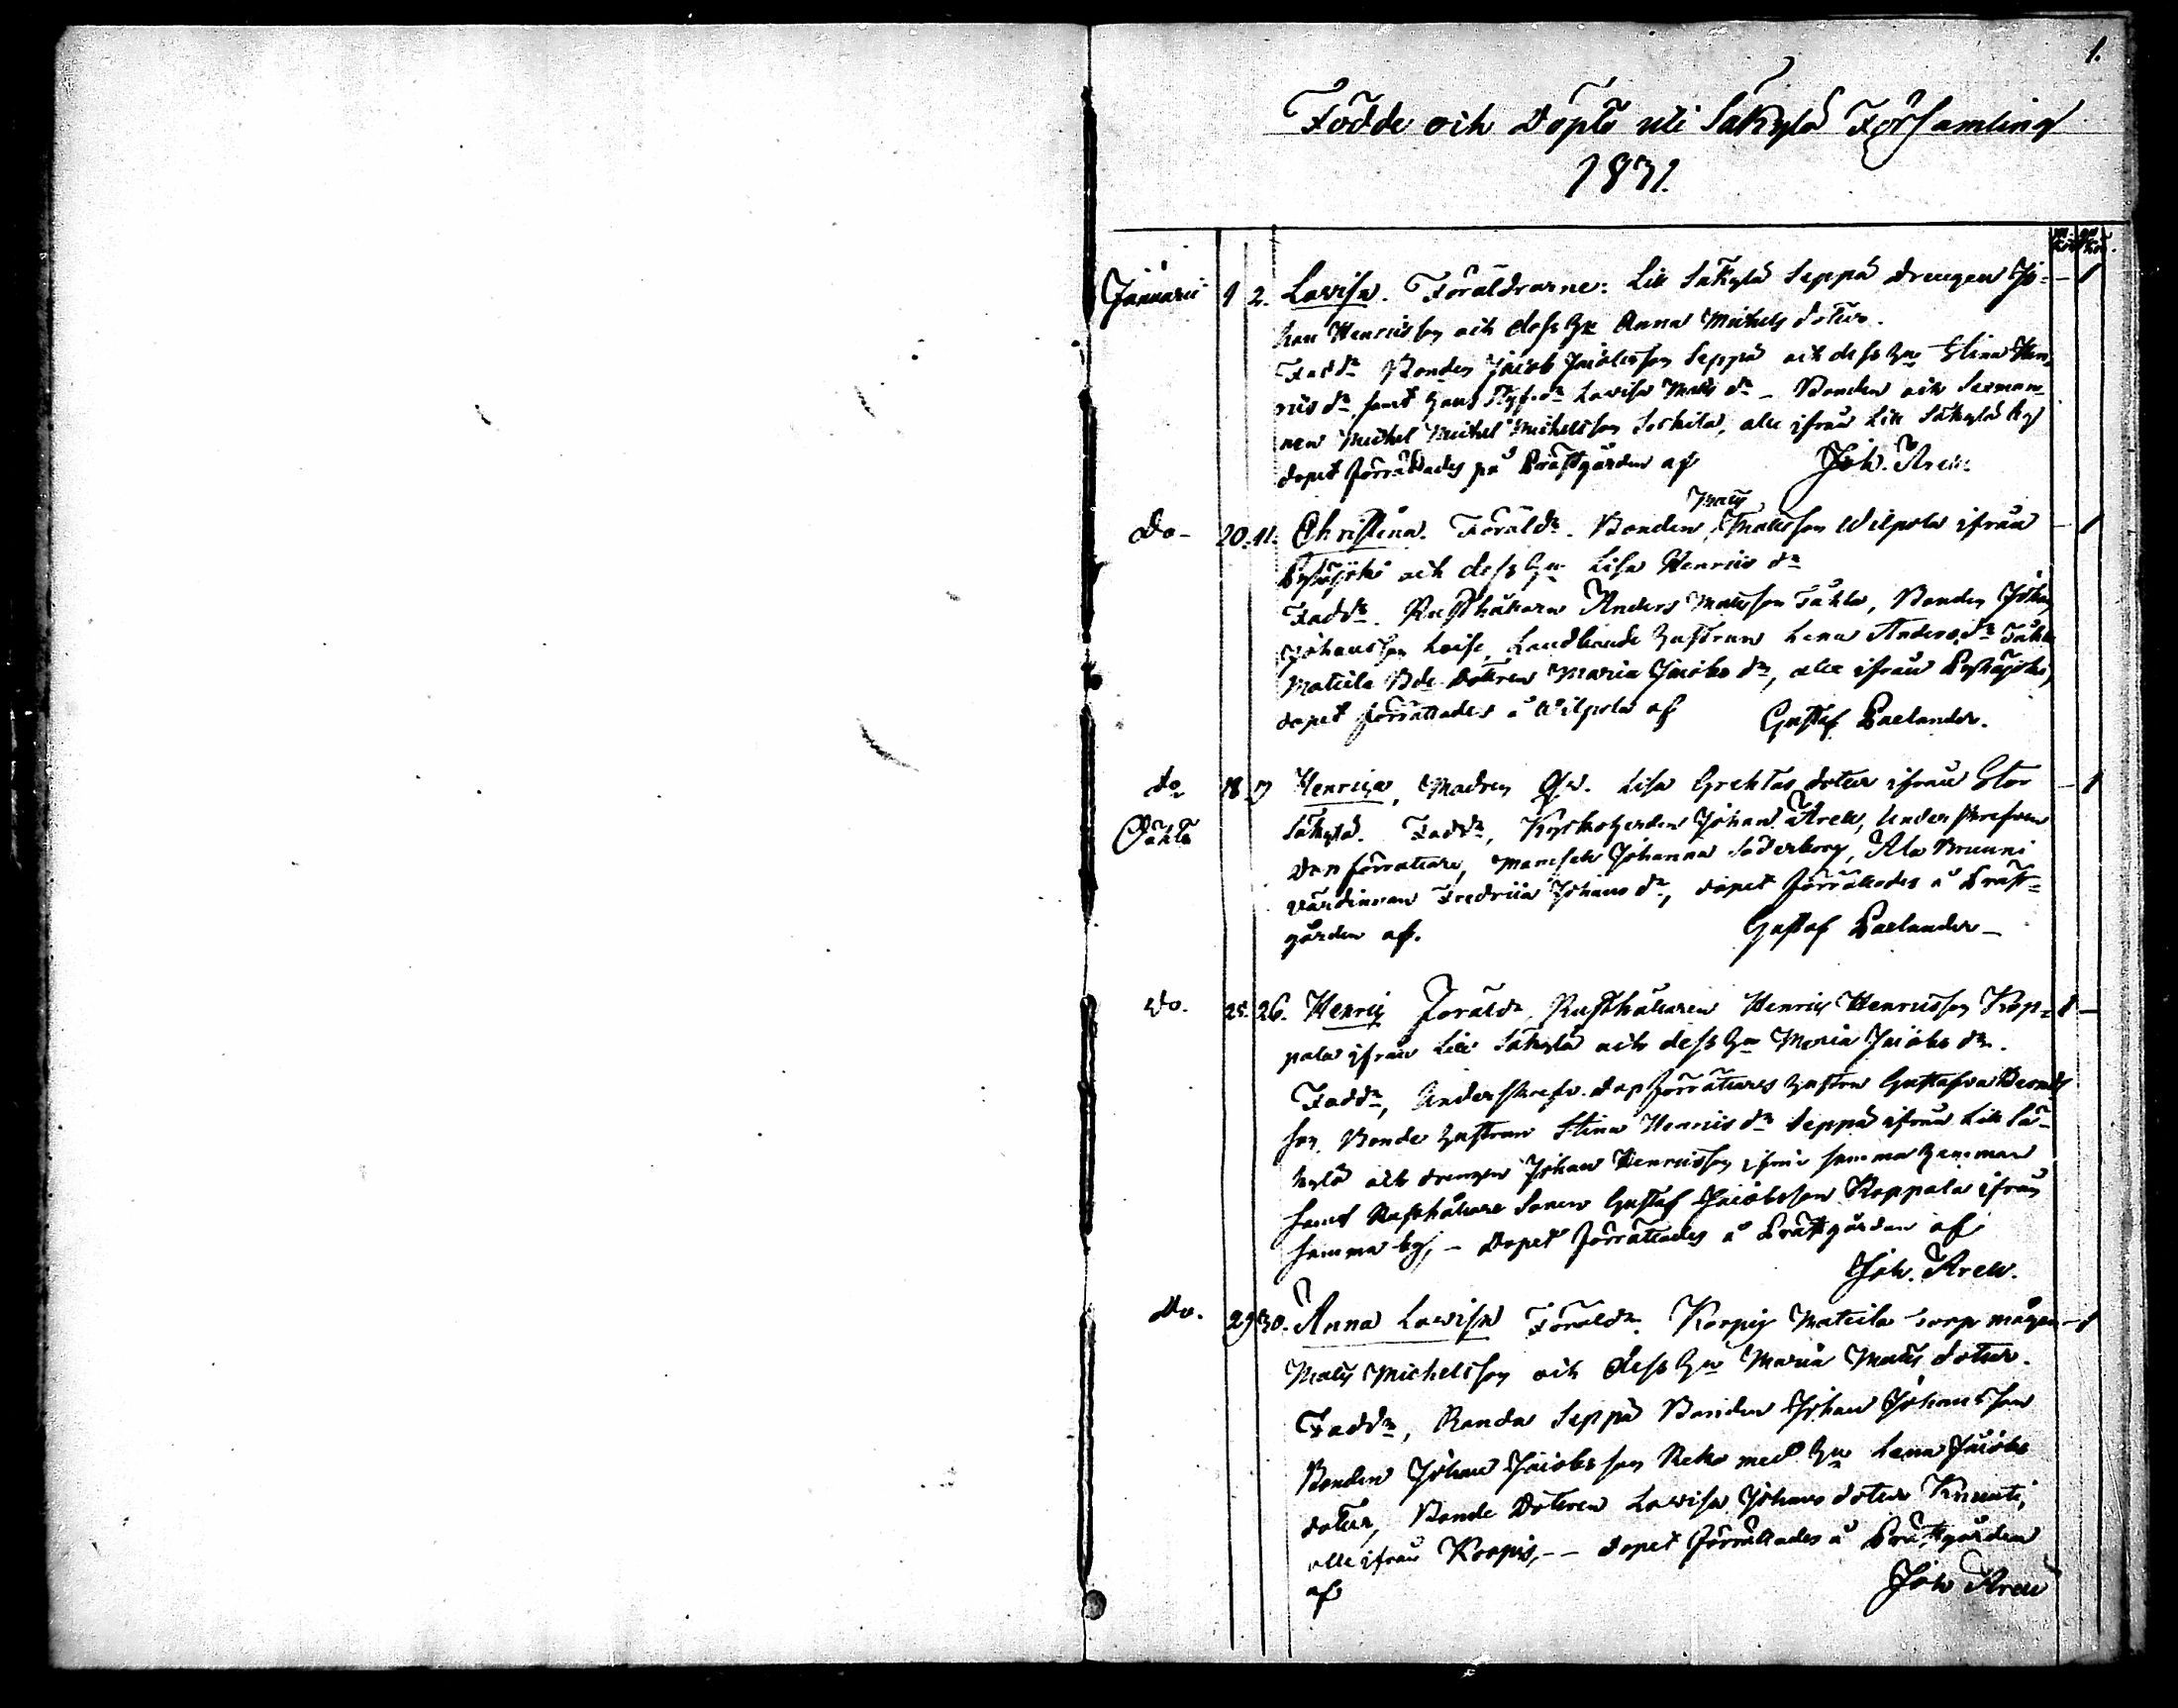 1.
Födde och Döpte uti Säkylä Församling
1831.
m. kön qv. kön.
Januarii 1 2. Lovisa. Föräldrarne: Lill Säkylä Seppä drengen Jo= – 1
han Henricsson och dess hu Anna Michels dotter.
Fadd:r Bonden Jacob Jacobsson Seppä och dess hu Stina Hen
rics d:r samt hans Styf d:r Lovisa Mats d:r – Bonden och Sexman
nen Michel Michel Michelsson, alle ifrån Lill Säkylä by
dopet förrättades på Prästgården af Joh. Arell.
Mats
Do – 20. 21. Christina. Föräld:r. Bonden Mattsson Wilpola ifrån – 1
Pyhäjoki och dess hu Lisa Henrics d:r
Fadd:r. Rusthållaren Anders Mattsson Tåhla, Bonden Johan
Johansson, Landbonde hustrun Lena Anders d:r
Matiila Bde Dottren Maria Jacobs d:r, alle ifrån Pyhäjoki,
dopet förrättades å Wilpola af Gustaf Paelander.
do 18 Henrica, Modren Lisa Grehtas dotter ifrån Stor – 1
Oäkta Säkylä. Fadd:r, Kyrkoherden Johan Arell, Underskrefven
Dop förrättare, Mamsell Johanna Söderborg, Ala Brunni
värdinnan Fredrica Johans d:r, dopet förrättades å Präst=
gården af. Gustaf Paelander –
Do. 25. 26. Henric Föräld:r, Rusthållaren Henric Henricsson Kop= 1 –
pala ifrån Lill Säkylä och dess hu Maria Jacobs d:r.
Fadd:r, Underskrefv. dop förrättares hustru Gustafva
Bonde hustrun Stina Henrics d:r Seppä ifrån Lill Sä=
kylä och drengen Johan Henricsson ifrån samma hemman
samt Rusthållare Sonen Gustaf Jacobsson Koppala ifrån
samma by, – Dopet förrättades å Prästgården af
Joh. Arell.
Do. 29 30. Anna Lovisa Föräld:r. Korpis Matiila torp mågen – 1
Mats Michelsson och dess hu Maria Mats dotter.
Fadd:r, Seppä Bonden Johan Johansson
Bonden Johan Jacobsson med hu Lena Jacobs
dotter, Bonde Dottren Lovisa Johans dotter
alle ifrån Korpis, – – dopet förrättades å Prästgården
af Joh Arell